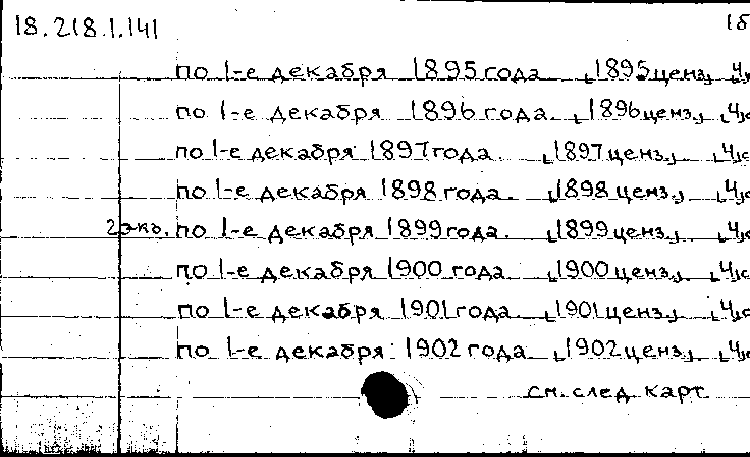 18.218.1.141
по 1-е декабря 1895 года ⌊1895 ценз.⌋
по 1-е декабря 1896 года. ⌊1896 ценз.⌋
по 1-е декабря 1897 года ⌊1897 ценз.⌋
по 1-е декабря 1898 года. ⌊1898 ценз.⌋
2 экз. по 1-е декабря 1899 года. ⌊1899 ценз.⌋
по 1-е декабря 1900 года ⌊1900 ценз.⌋
по 1-е декабря 1901 года ⌊1901 ценз.⌋
по 1-е декабря 1902 года ⌊1902 ценз.⌋
см. след. карт